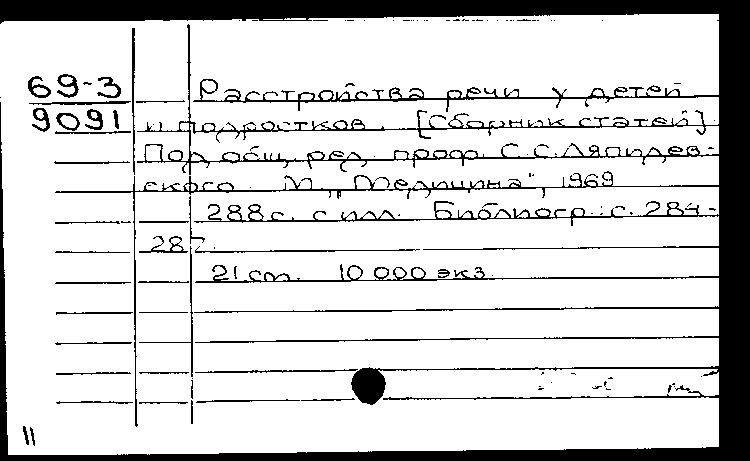 69-3
9091
Расстройства речи у детей
и подростков. [Сборник статей].
Под общ. ред. проф. С.С.Ляпидев-
ского. М., „Медицина“, 1969
288 с. с илл. Библиогр.: с. 284-
287.
21 см. 10 000 экз.
11